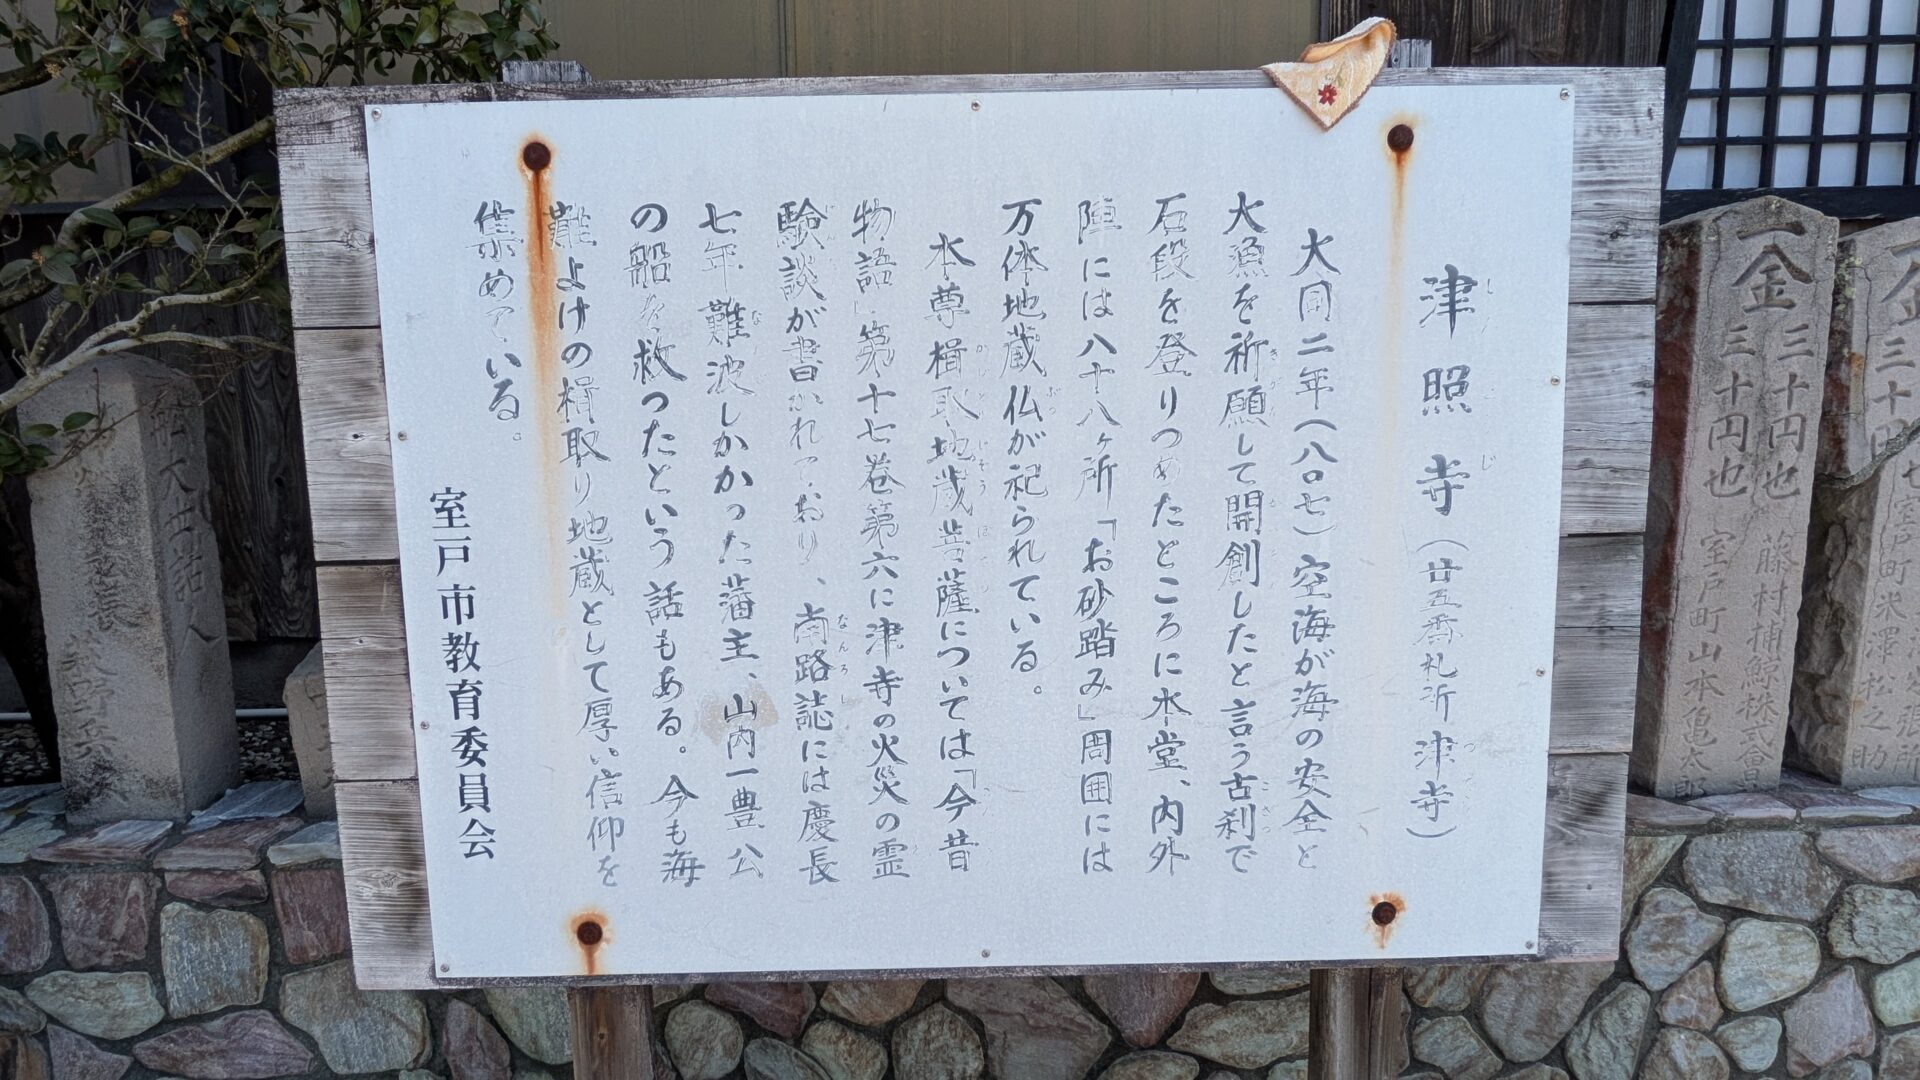 津照寺(廿五番札所津寺)
大同二年(八〇七)空海が海の安全と
大漁を祈願して開創したと言う古刹で
石段を登りつめたところに本堂、内外
陣には八十八ヶ所「お砂踏み」周囲には
万体地蔵仏が祀られている。
本尊楫取地蔵菩薩については「今昔
物語」第十七巻第六に津寺の火災の霊
験談が書かれており、南路誌には慶長
七年難波しかかった藩主、山内一豊公
の船を救ったという話もある。今も海
難よけの楫取り地蔵として厚い信仰を
集めている。
室戸市教育委員会
一金三十円也 藤村捕鯨株式會
三十円也 室戸町山本亀太郎
一金三十円也 室戸町米澤松之助